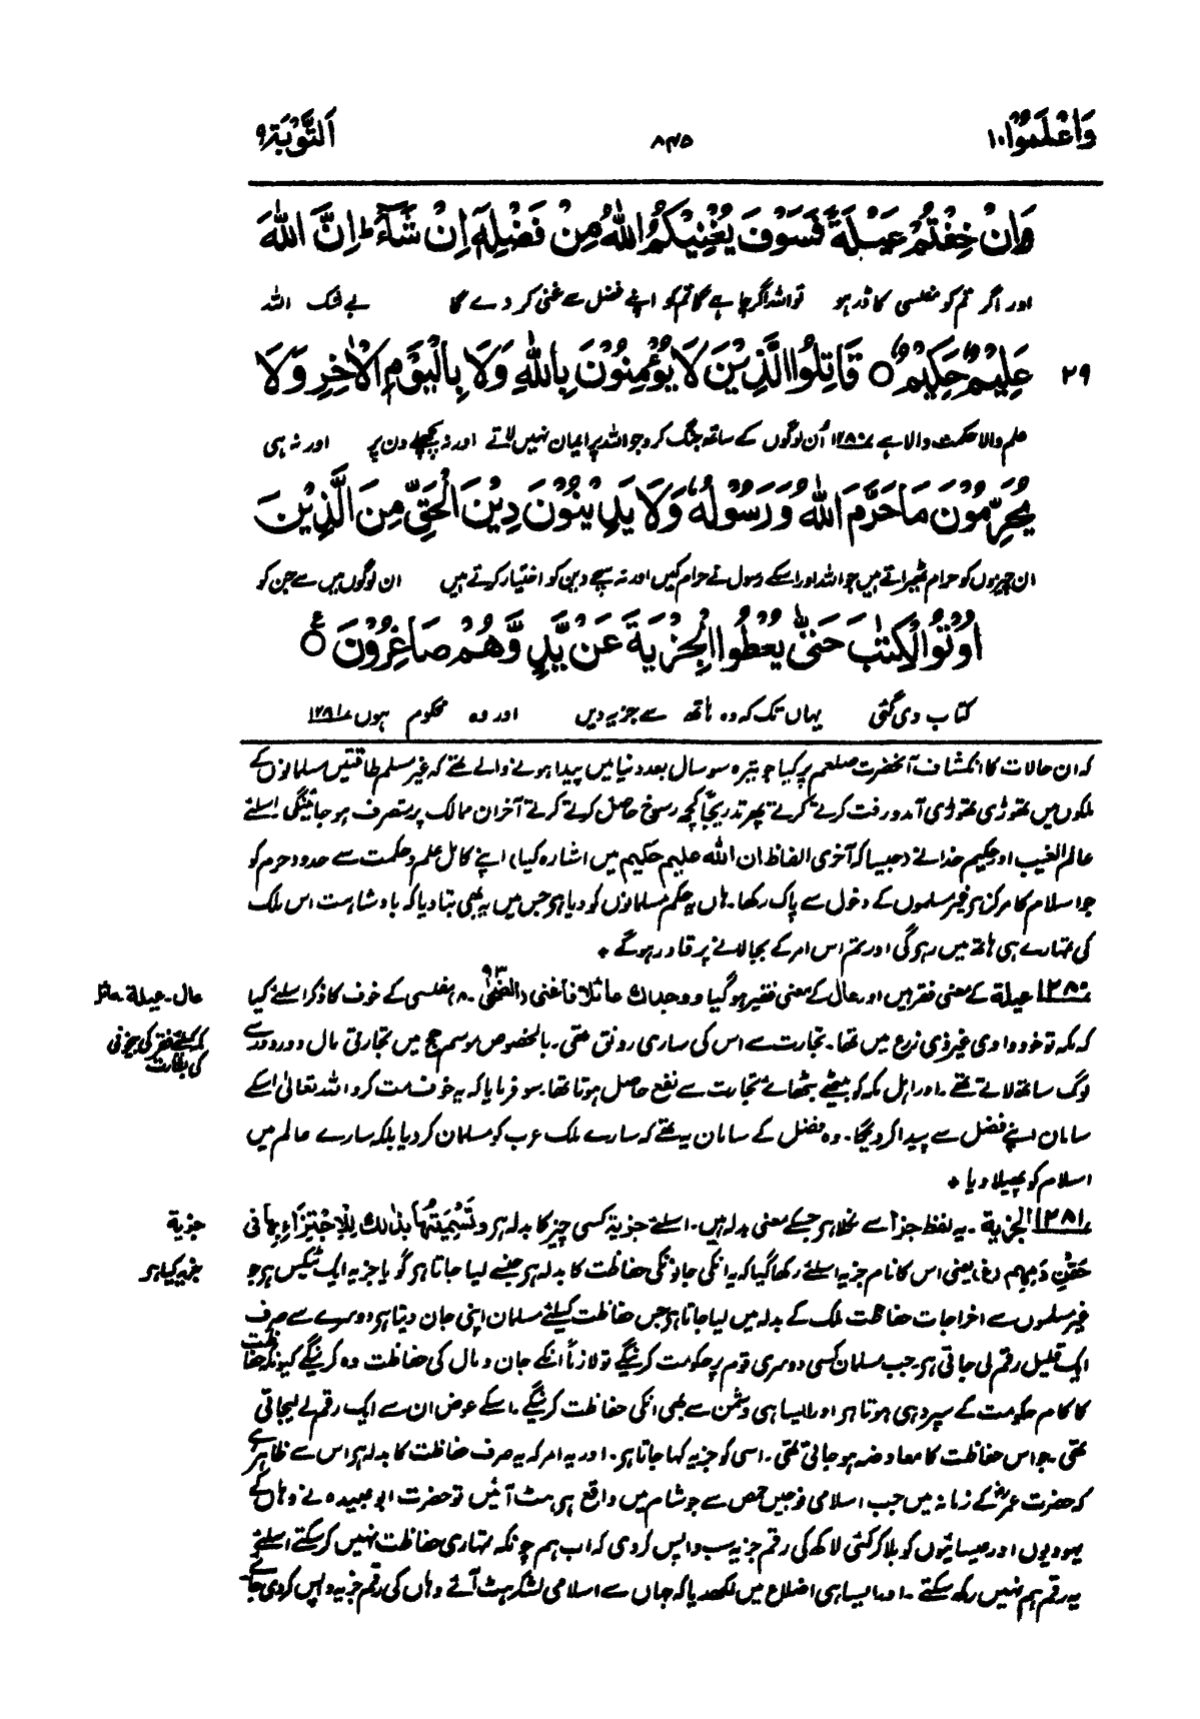 وَاعْلَمُوْٓا۱۰ ۸۴۵ اَلتَّوْبَة۹
وَاِنْ خِفْتُمْ عَيْلَةً فَسَوْفَ يُغْنِيْكُمُ اللّٰهُ مِنْ فَضْلِهٖٓ اِنْ شَآءَ ؕ اِنَّ اللّٰهَ
اور اگر تم کو مفلسی کا ڈر ہو تو اللہ اگر چاہے گا تم کو اپنے فضل سے غنی کر دے گا بے شک اللہ
۲۹ عَلِيْمٌ حَكِيْمٌ ○ قَاتِلُوا الَّذِيْنَ لَا يُؤْمِنُوْنَ بِاللّٰهِ وَلَا بِالْيَوْمِ الْاٰخِرِ وَلَا
علم والا حکمت والا ہے ۱۲۸۰؎ اُن لوگوں کے ساتھ جنگ کرو جو اللہ پر ایمان نہیں لاتے اور نہ پچھلے دن پر اور نہ ہی
يُحَرِّمُوْنَ مَا حَرَّمَ اللّٰهُ وَرَسُوْلُهٗ وَلَا يَدِيْنُوْنَ دِيْنَ الْحَقِّ مِنَ الَّذِيْنَ
ان چیزوں کو حرام ٹھیراتے ہیں جو اللہ اور اسکے رسول نے حرام کیں اور نہ سچے دین کو اختیار کرتے ہیں ان لوگوں میں سے جن کو
اُوْتُوا الْكِتٰبَ حَتّٰى يُعْطُوا الْجِزْيَةَ عَنْ يَّدٍ وَّهُمْ صَاغِرُوْنَ ○ ع
کتاب دی گئی یہاں تک کہ وہ ہاتھ سے جزیہ دیں اور وہ محکوم ہوں ۱۲۸۱؎
کہ ان حالات کا انکشاف آنحضرت صلعم پر کیا جو تیرہ سو سال بعد دنیا میں پیدا ہونے والے تھے کہ غیر مسلم طاقتیں مسلمانوں کے
ملکوں میں تھوڑی تھوڑی آمد و رفت کرتے کرتے پھر تدریجاً کچھ رسوخ حاصل کرتے کرتے آخر ان ممالک پر متصرف ہو جائینگی اسلئے
عالم الغیب اور حکیم خدا نے (جیسا کہ آخری الفاظ ان اللہ علیم حکیم میں اشارہ کیا) اپنے کامل علم و حکمت سے حدود حرم کو
جو اسلام کا مرکز ہو غیر مسلموں کے دخول سے پاک رکھا۔ ہاں یہ حکم مسلمانوں کو دیا ہو جس میں یہ بھی بتا دیا کہ بادشاہت اس ملک
کی تمہارے ہی ہاتھ میں رہو گی اور تم اس امر کے بجا لانے پر قادر ہو گے ٭
۱۲۸۰؎ عیلة کے معنی فقر ہیں اور عال کے معنی فقیر ہو گیا ووجدك عائلا فاغنی (الضحیٰ ۹۳۔۸) مفلسی کے خوف کا ذکر اسلئے کیا
عال۔ عیلة۔ عائل
کہ مکہ تو خود وادی غیر ذی زرع میں تھا۔ تجارت سے اس کی ساری رونق تھی۔ بالخصوص موسم حج میں تجارتی مال دور دور سے
مکہ کیلئے فقر کی بیخوفی
کی بشارت
لوگ ساتھ لاتے تھے۔ اور اہل مکہ کو بیٹھے بٹھائے تجارت سے نفع حاصل ہوتا تھا۔ سو فرمایا کہ یہ خوف مت کرو اللہ تعالیٰ اسکے
سامان اپنے فضل سے پیدا کر دیگا۔ وہ فضل کے سامان یہ تھے کہ سارے ملک عرب کو مسلمان کر دیا بلکہ سارے عالم میں
اسلام کو پھیلا دیا ٭
۱۲۸۱؎ الجزیة۔ یہ لفظ جزاء سے نکلا ہو جسکے معنی بدلہ ہیں۔ اسلئے جزیة کسی چیز کا بدلہ ہو وتَسْمِيَتُهَا بذٰلك لِلِاجْتِزَاءِ بِهَا فی
جزیة
حَقْنِ دَمِهِم (غ) یعنی اس کا نام جزیہ اسلئے رکھا گیا کہ یہ انکی جانونکی حفاظت کا بدلہ ہو جسنے لیا جاتا ہو گویا جزیہ ایک ٹیکس ہو جو
جزیہ کیا ہو
غیر مسلموں سے اخراجات حفاظت ملک کے بدلہ میں لیا جاتا ہو جس حفاظت کیلئے مسلمان اپنی جان دیتا ہو دوسرے سے صرف
ایک قلیل رقم لی جاتی ہو۔ جب مسلمان کسی دوسری قوم پر حکومت کرینگے تو لازماً انکے جان و مال کی حفاظت وہ کرینگے کیونکہ حفاظت
کا کام حکومت کے سپرد ہی ہوتا ہو اور ایسا ہی دشمن سے بھی انکی حفاظت کرینگے۔ اسکے عوض ان سے ایک رقم لے لیجاتی
تھی۔ جو اس حفاظت کا معاوضہ ہو جاتی تھی۔ اسی کو جزیہ کہا جاتا ہو۔ اور یہ امر کہ یہ صرف حفاظت کا بدلہ ہو اس سے ظاہر ہے
کہ حضرت عمرؓ کے زمانہ میں جب اسلامی فوجیں حمص سے جو شام میں واقع ہی ہٹ آئیں تو حضرت ابو عبیدہ نے وہاں کے
یہودیوں اور عیسائیوں کو بلا کر کئی لاکھ کی رقم جزیہ سب واپس کر دی کہ اب ہم چونکہ تمہاری حفاظت نہیں کر سکتے اسلئے
یہ رقم ہم نہیں رکھ سکتے۔ اور ایسا ہی اضلاع میں لکھدیا کہ جہاں سے اسلامی لشکر ہٹ آئے وہاں کی رقم جزیہ واپس کر دی جائے